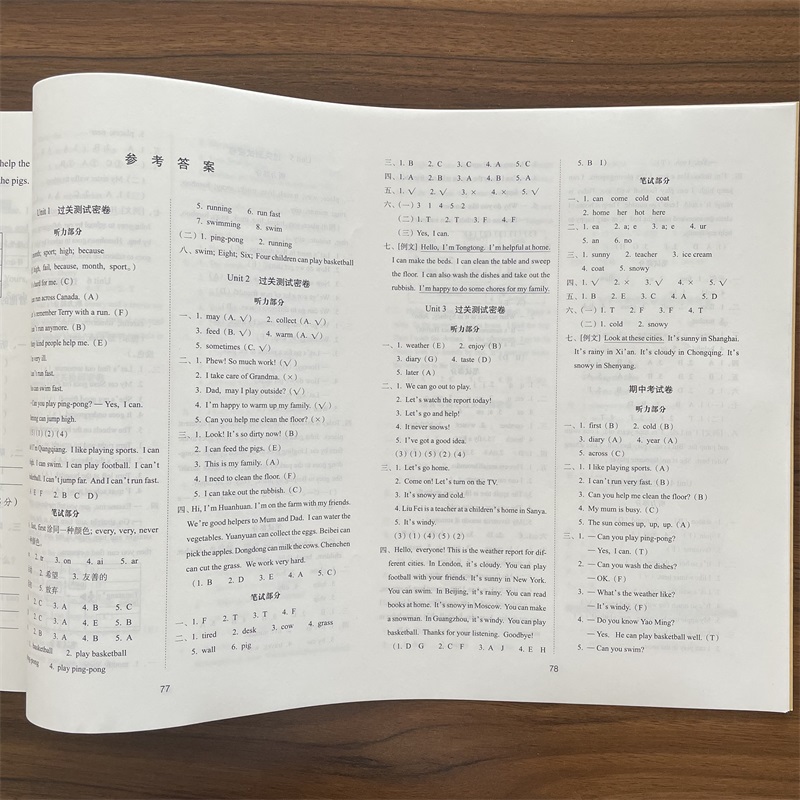 help the
the pigs.
参 考 答 案
Unit 1 过关测试密卷
听力部分
month; sport; high; because
high, fail, because, month, sport。)
hard for me.（C）
ran across Canada.（A）
remember Terry with a run.（F）
can't run anymore.（B）
kind people help me.（E）
very ill.
can't run fast.
can swim fast.
Can you play ping-pong? — Yes, I can.
can jump high.
(3)(1)(2)(4)
I'm Qungqiang. I like playing sports. I can
I can swim. I can play football. I can't
I can't jump far. And I can't run fast.
E F 2. B C D）
笔试部分
first 涂同一种颜色; every, very, never
2. ir 3. on 4. ai 5. ar
2. 希望 3. 友善的
5. 放弃
2. C 3. A 4. B 5. C
2. C 3. A 4. E 5. B
2. B 3. A 4. B 5. A
basketball 2. play basketball
4. play ping-pong
5. running 6. run fast
7. swimming 8. swim
(二) 1. ping-pong 2. running
八、swim; Eight; Six; Four children can play basketball
Unit 2 过关测试密卷
听力部分
一、1. may（A. √） 2. collect（A. √）
3. feed（B. √） 4. warm（A. √）
5. sometimes（C. √）
二、1. Phew! So much work!（√）
2. I take care of Grandma.（×）
3. Dad, may I play outside?（√）
4. I'm happy to warm up my family.（√）
5. Can you help me clean the floor?（×）
三、1. Look! It's so dirty now!（B）
2. I can feed the pigs.（E）
3. This is my family.（A）
4. I need to clean the floor.（F）
5. I can take out the rubbish.（C）
四、Hi, I'm Huanhuan. I'm on the farm with my friends.
We're good helpers to Mum and Dad. I can water the
vegetables. Yuanyuan can collect the eggs. Beibei can
pick the apples. Dongdong can milk the cows. Chenchen
can cut the grass. We work very hard.
（1. B 2. D 3. E 4. A 5. C）
笔试部分
一、1. F 2. T 3. T 4. F
二、1. tired 2. desk 3. cow 4. grass
5. wall 6. pig
77
三、1. B 2. C 3. C 4. A 5. C
四、1. A 2. B 3. A 4. B 5. A
五、1. √ 2. √ 3. × 4. × 5. √
六、(一) 3 1 4 5 2
(二) 1. T 2. T 3. F 4. F
(三) Yes, I can.
七、[例文] Hello, I'm Tongtong. I'm helpful at home.
I can make the beds. I can clean the table and sweep
the floor. I can also wash the dishes and take out the
rubbish. I'm happy to do some chores for my family.
Unit 3 过关测试密卷
听力部分
一、1. weather（E） 2. enjoy（B）
3. diary（G） 4. taste（D）
5. later（A）
二、1. We can go out to play.
2. Let's watch the report today!
3. Let's go and help!
4. It never snows!
5. I've got a good idea.
(3)(1)(5)(2)(4)
三、1. Let's go home.
2. Come on! Let's turn on the TV.
3. It's snowy and cold.
4. Liu Fei is a teacher at a children's home in Sanya.
5. It's windy.
(3)(1)(4)(5)(2)
四、Hello, everyone! This is the weather report for dif-
ferent cities. In London, it's cloudy. You can play
football with your friends. It's sunny in New York.
You can swim. In Beijing, it's rainy. You can read
books at home. It's snowy in Moscow. You can make
a snowman. In Guangzhou, it's windy. You can play
basketball. Thanks for your listening. Goodbye!
（1. D G 2. C F 3. A J 4. E H
78
5. B I）
笔试部分
一、1. can come cold coat
2. home her hot here
二、1. ea 2. a; e 3. a; e 4. ur
5. an 6. no
三、1. sunny 2. teacher 3. ice cream
4. coat 5. snowy
四、1. √ 2. × 3. √ 4. × 5. √
五、1. B 2. E 3. C 4. A 5. D
六、(一) 1. T 2. F 3. F 4. T
(二) 1. cold 2. snowy
七、[例文] Look at these cities. It's sunny in Shanghai.
It's rainy in Xi'an. It's cloudy in Chongqing. It's
snowy in Shenyang.
期中考试卷
听力部分
一、1. first（B） 2. cold（B）
3. diary（A） 4. year（A）
5. across（C）
二、1. I like playing sports.（A）
2. I can't run very fast.（B）
3. Can you help me clean the floor?（B）
4. My mum is busy.（C）
5. The sun comes up, up, up.（A）
三、1. — Can you play ping-pong?
— Yes, I can.（T）
2. — Can you wash the dishes?
— OK.（F）
3. — What's the weather like?
— It's windy.（F）
4. — Do you know Yao Ming?
— Yes. He can play basketball well.（T）
5. — Can you swim?